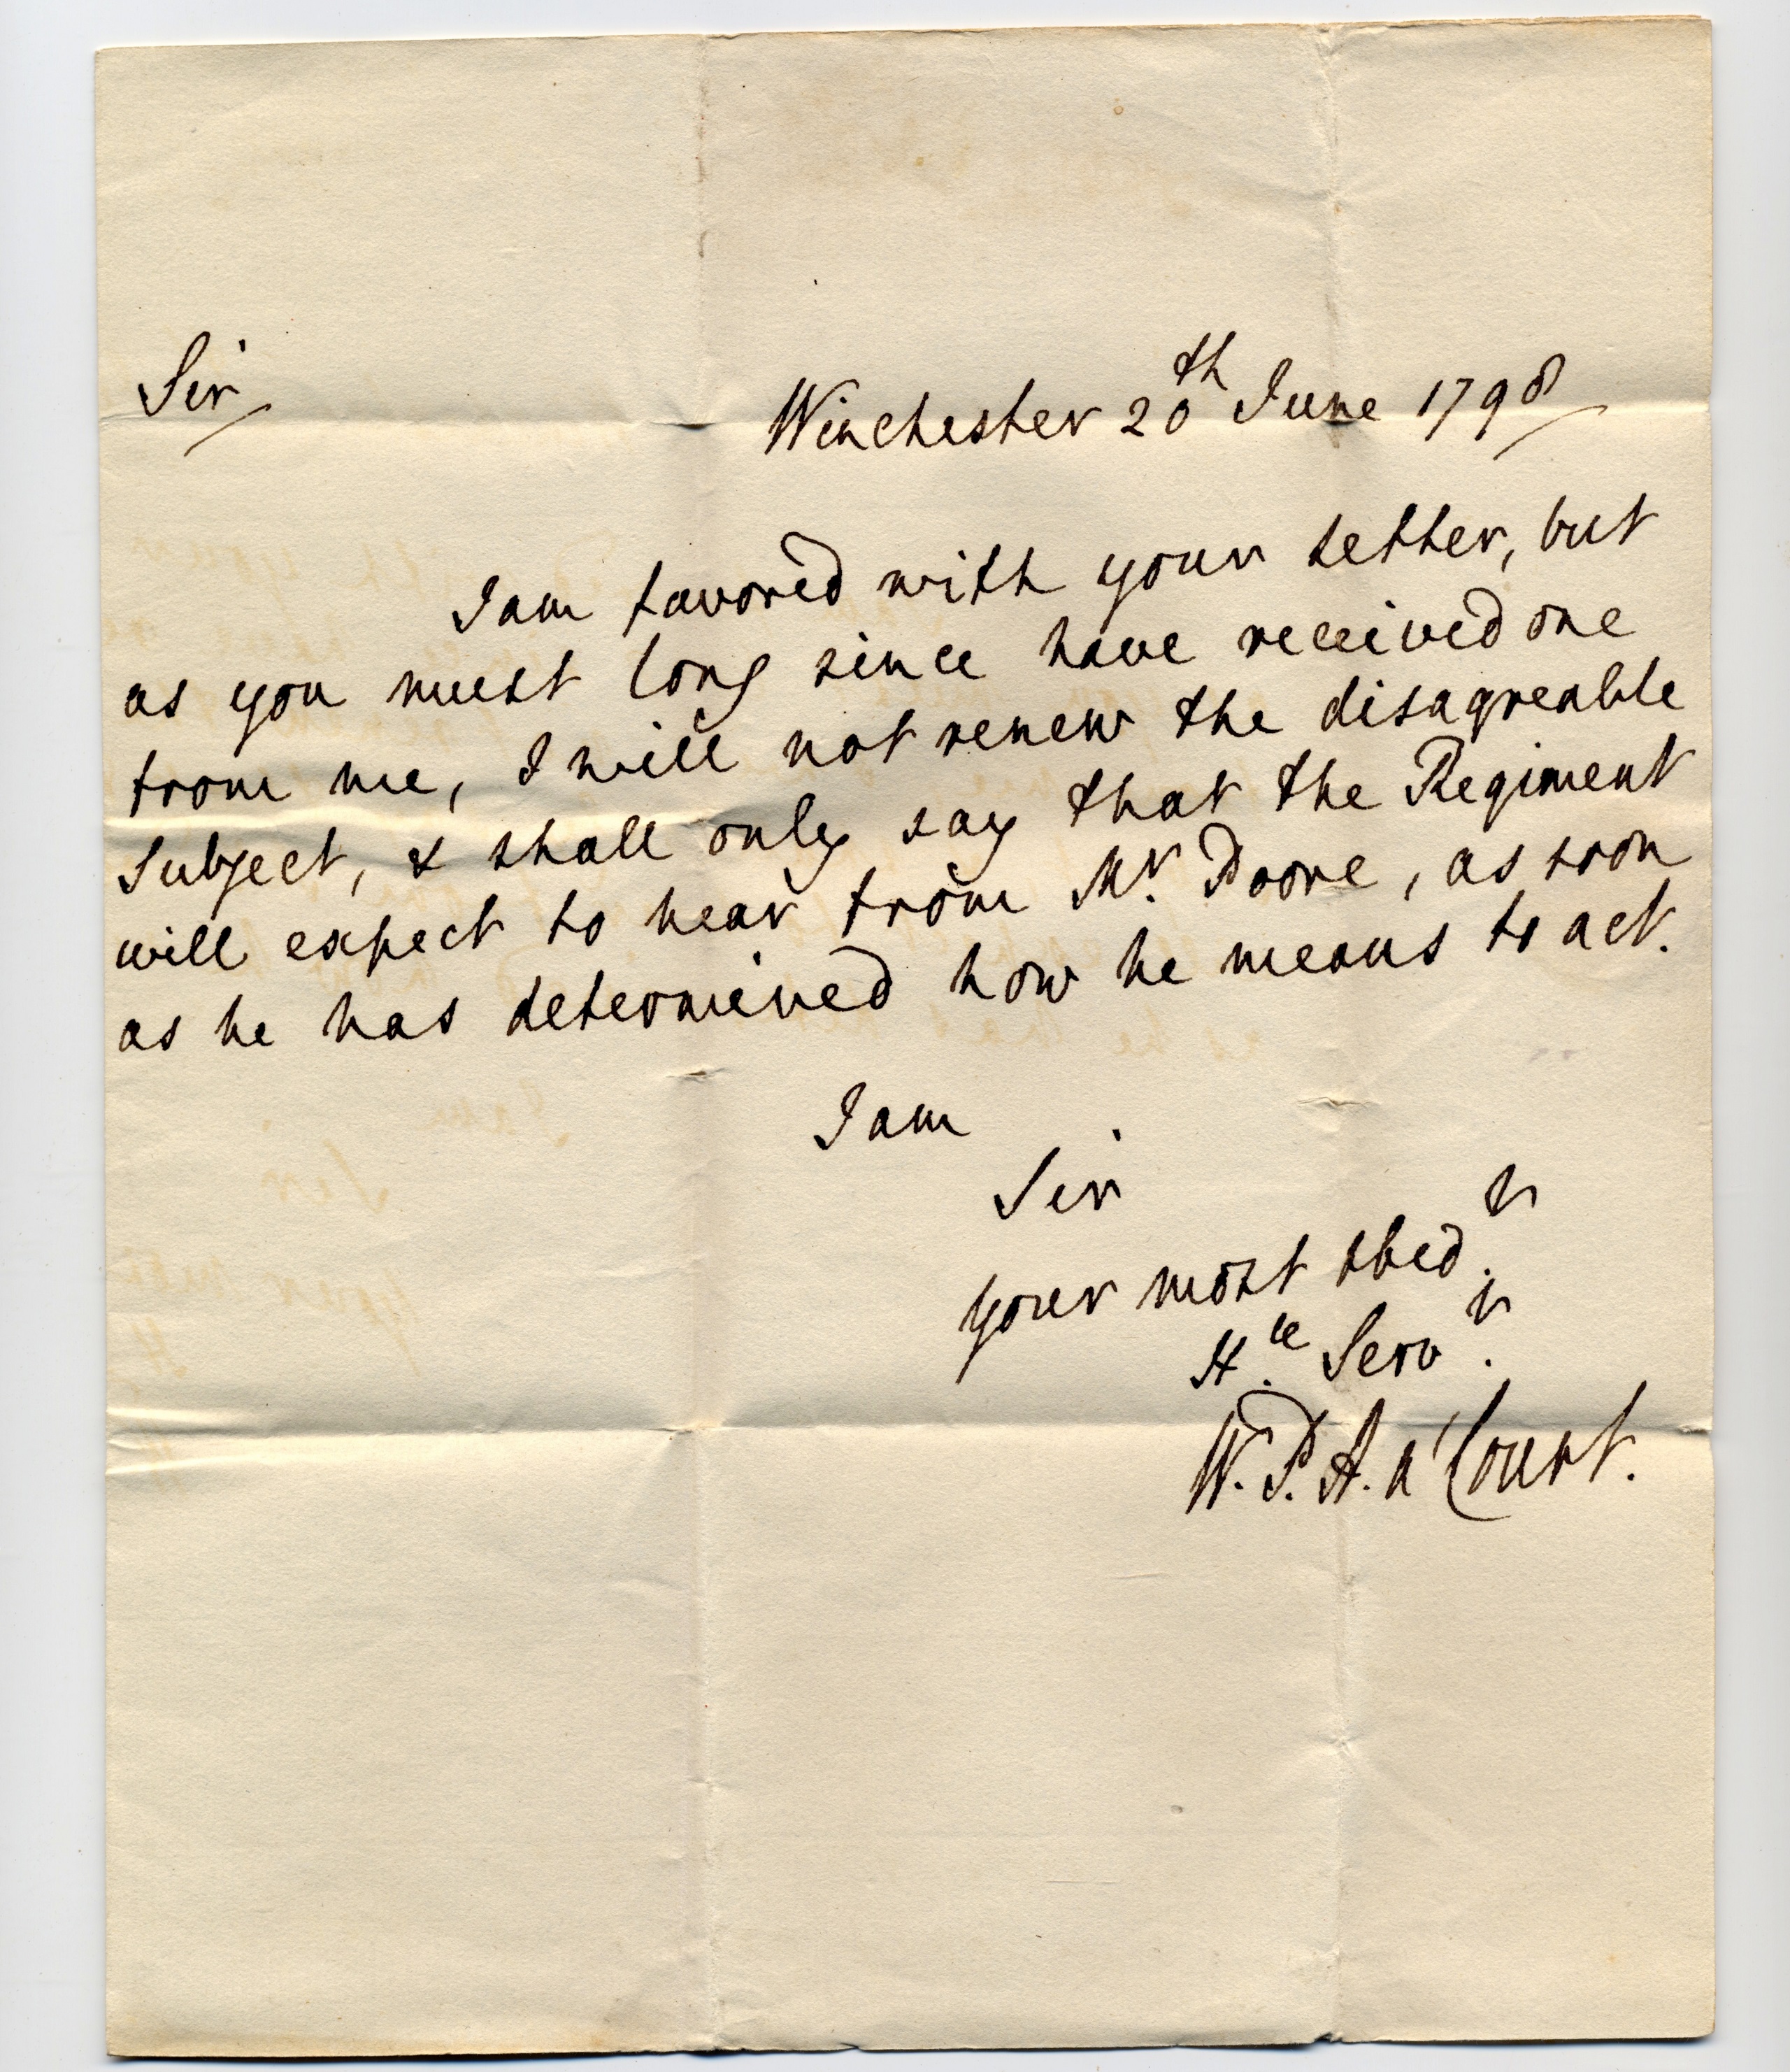 Sir
Winchester 20th June 1798
I am favored with your letter, but
as you must long since have received one
from me, I will not renew the disagreable
subject, & shall only say that the Regiment
will expect to hear from Mr. Poore, as soon
as he has determined how he means to act.
I am
Sir
your most obedt.
Hle. Servt.
W. P. A. A'Court.